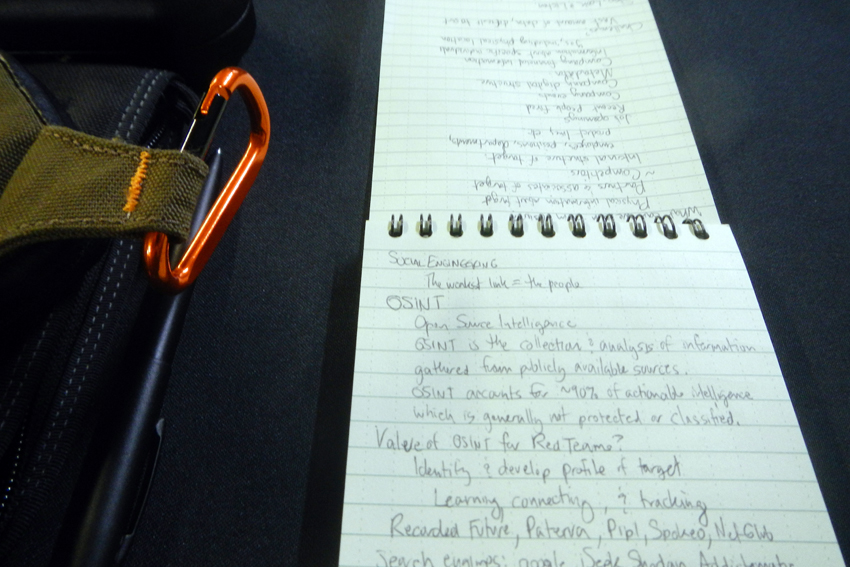 Social Engineering
The weakest link = the people
OSINT
Open Source Intelligence
OSINT is the collection & analysis of information
gathered from publicly available sources.
OSINT accounts for ~90% of actionable intelligence
which is generally not protected or classified.
Value of OSINT for Red Teams?
Identify & develop profile of target
Learning, connecting, & tracking
Recorded Future, Paterva, Pipl, Spokeo, NetGlub
Search engines: google, Shodan,
Physical information about target
Partners & associates of target
~ Competitors
Internal structure of target
employees, positions, departments,
product lines, etc
Job openings
Recent people fired
Company events
Company digital structure
Metadata
Company financial information
Information about specific individuals
Yes, including physical location
Challenges?
Vast amount of data, difficult to sort